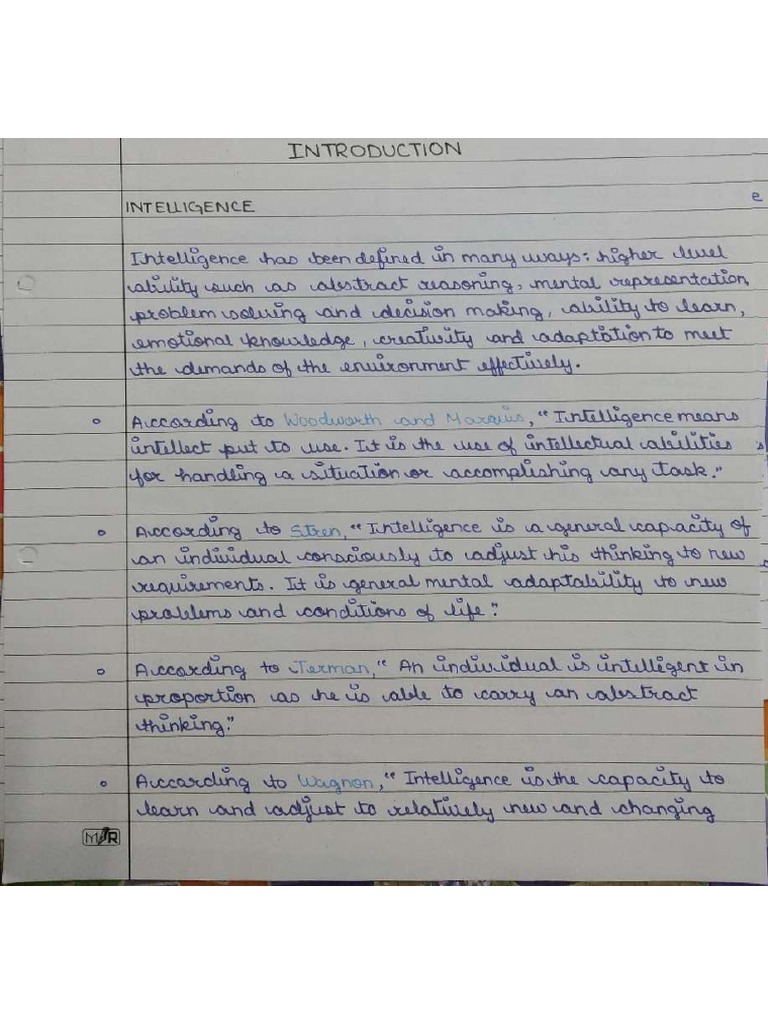 INTRODUCTION
INTELLIGENCE
Intelligence has been defined in many ways: higher level
ability such as abstract reasoning, mental representation,
problem solving and decision making, ability to learn,
emotional knowledge, creativity and adaptation to meet
the demands of the environment effectively.
According to Woodworth and Marquis, "Intelligence means
intellect put to use. It is the use of intellectual abilities
for handling a situation or accomplishing any task."
According to Stren, "Intelligence is a general capacity of
an individual consciously to adjust his thinking to new
requirements. It is general mental adaptability to new
problems and conditions of life".
According to Terman, "An individual is intelligent in
proportion as he is able to carry an abstract
thinking."
According to Wagnon, "Intelligence is the capacity to
learn and adjust to relatively new and changing